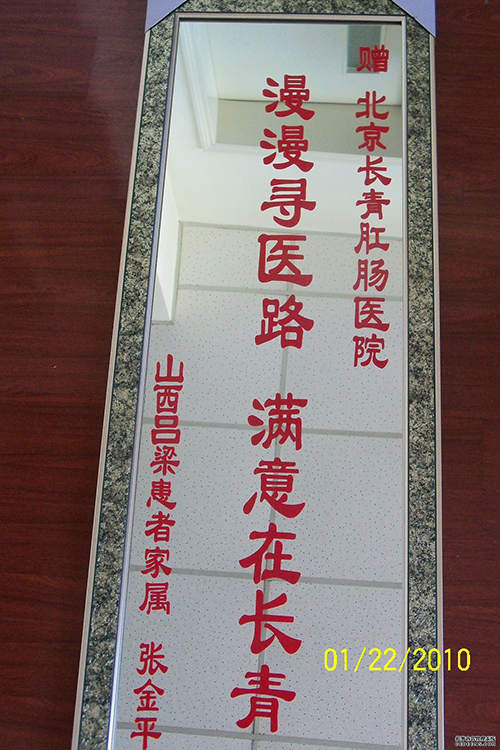 赠 北京长青肛肠医院
漫漫寻医路 满意在长青
山西吕梁患者家属 张金平
01/22/2010